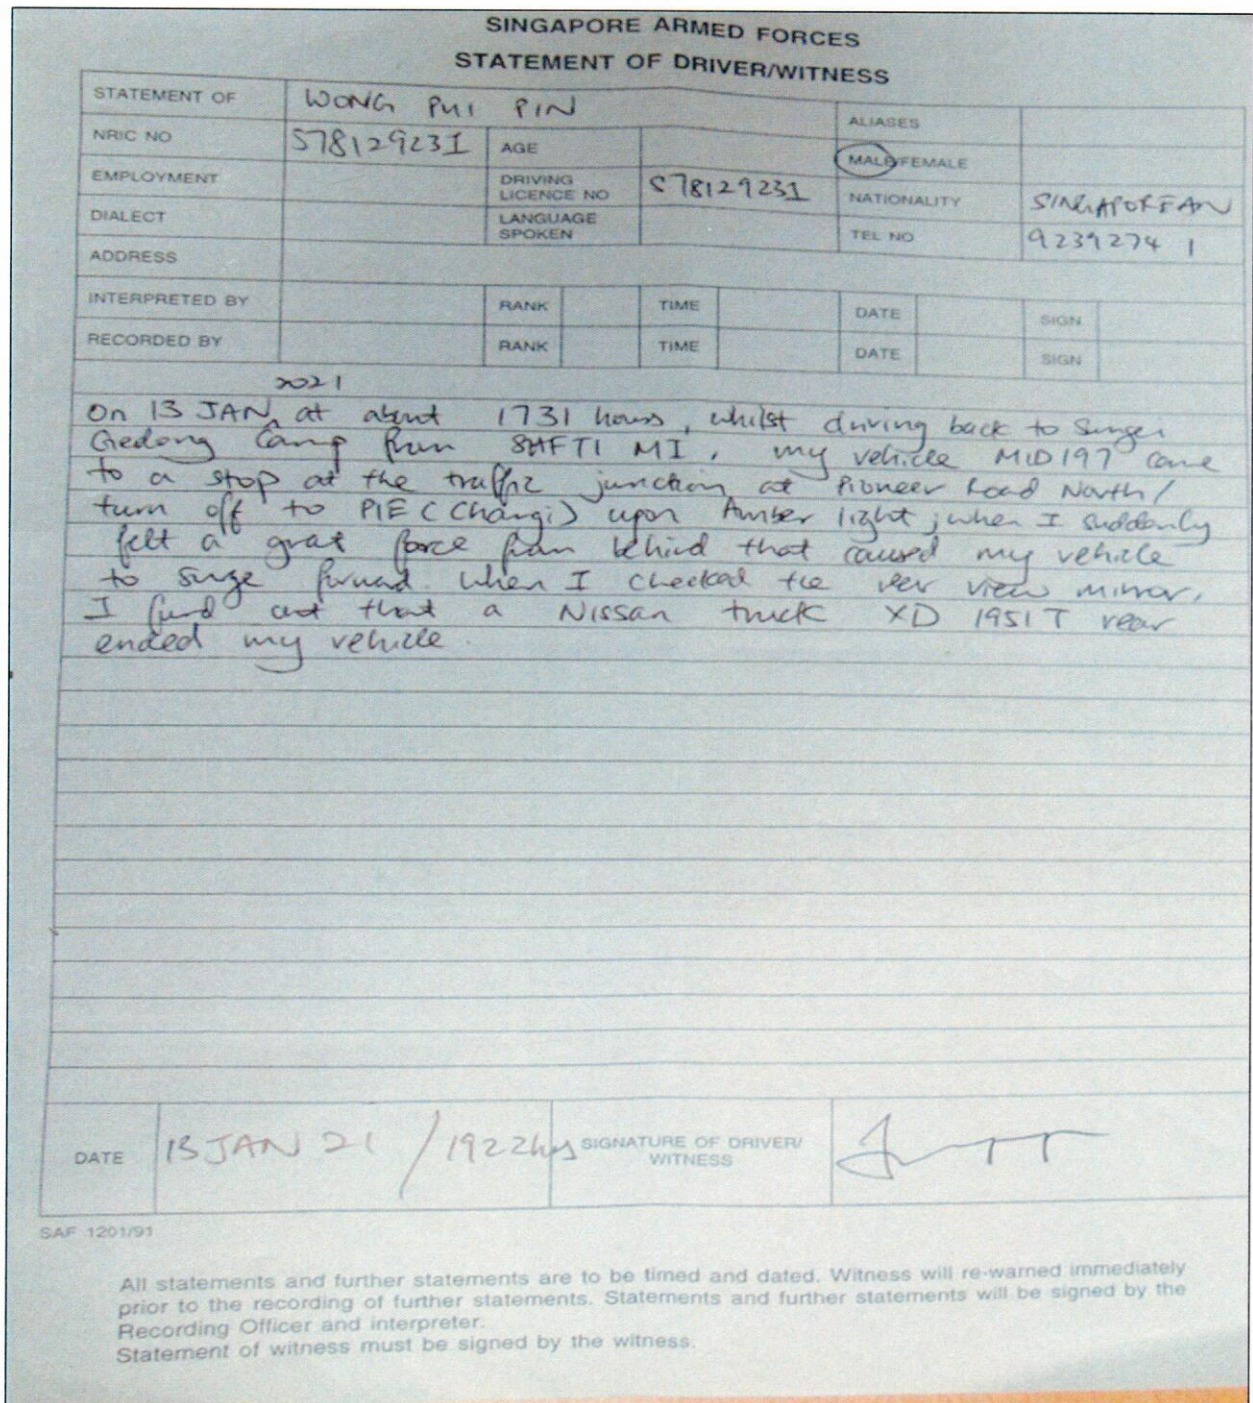 SINGAPORE ARMED FORCES
STATEMENT OF DRIVER/WITNESS
STATEMENT OF WONG PUI PIN ALIASES
NRIC NO S7812923I AGE MALE/FEMALE
EMPLOYMENT DRIVING LICENCE NO S7812923I NATIONALITY SINGAPOREAN
DIALECT LANGUAGE SPOKEN TEL NO 92392741
ADDRESS
INTERPRETED BY RANK TIME DATE SIGN
RECORDED BY RANK TIME DATE SIGN
2021
On 13 JAN, at about 1731 hours, whilst driving back to Sungei
Gedong Camp from SAFTI MI, my vehicle MID197 came
to a stop at the traffic junction at Pioneer Road North/
turn off to PIE (Changi) upon Amber light, when I suddenly
felt a great force from behind that caused my vehicle
to surge forward. When I checked the rear view mirror,
I found out that a Nissan truck XD 1951T rear
ended my vehicle.
DATE 13 JAN 21 / 1922hrs SIGNATURE OF DRIVER/ WITNESS
SAF 1201/91
All statements and further statements are to be timed and dated. Witness will re-warned immediately
prior to the recording of further statements. Statements and further statements will be signed by the
Recording Officer and interpreter.
Statement of witness must be signed by the witness.